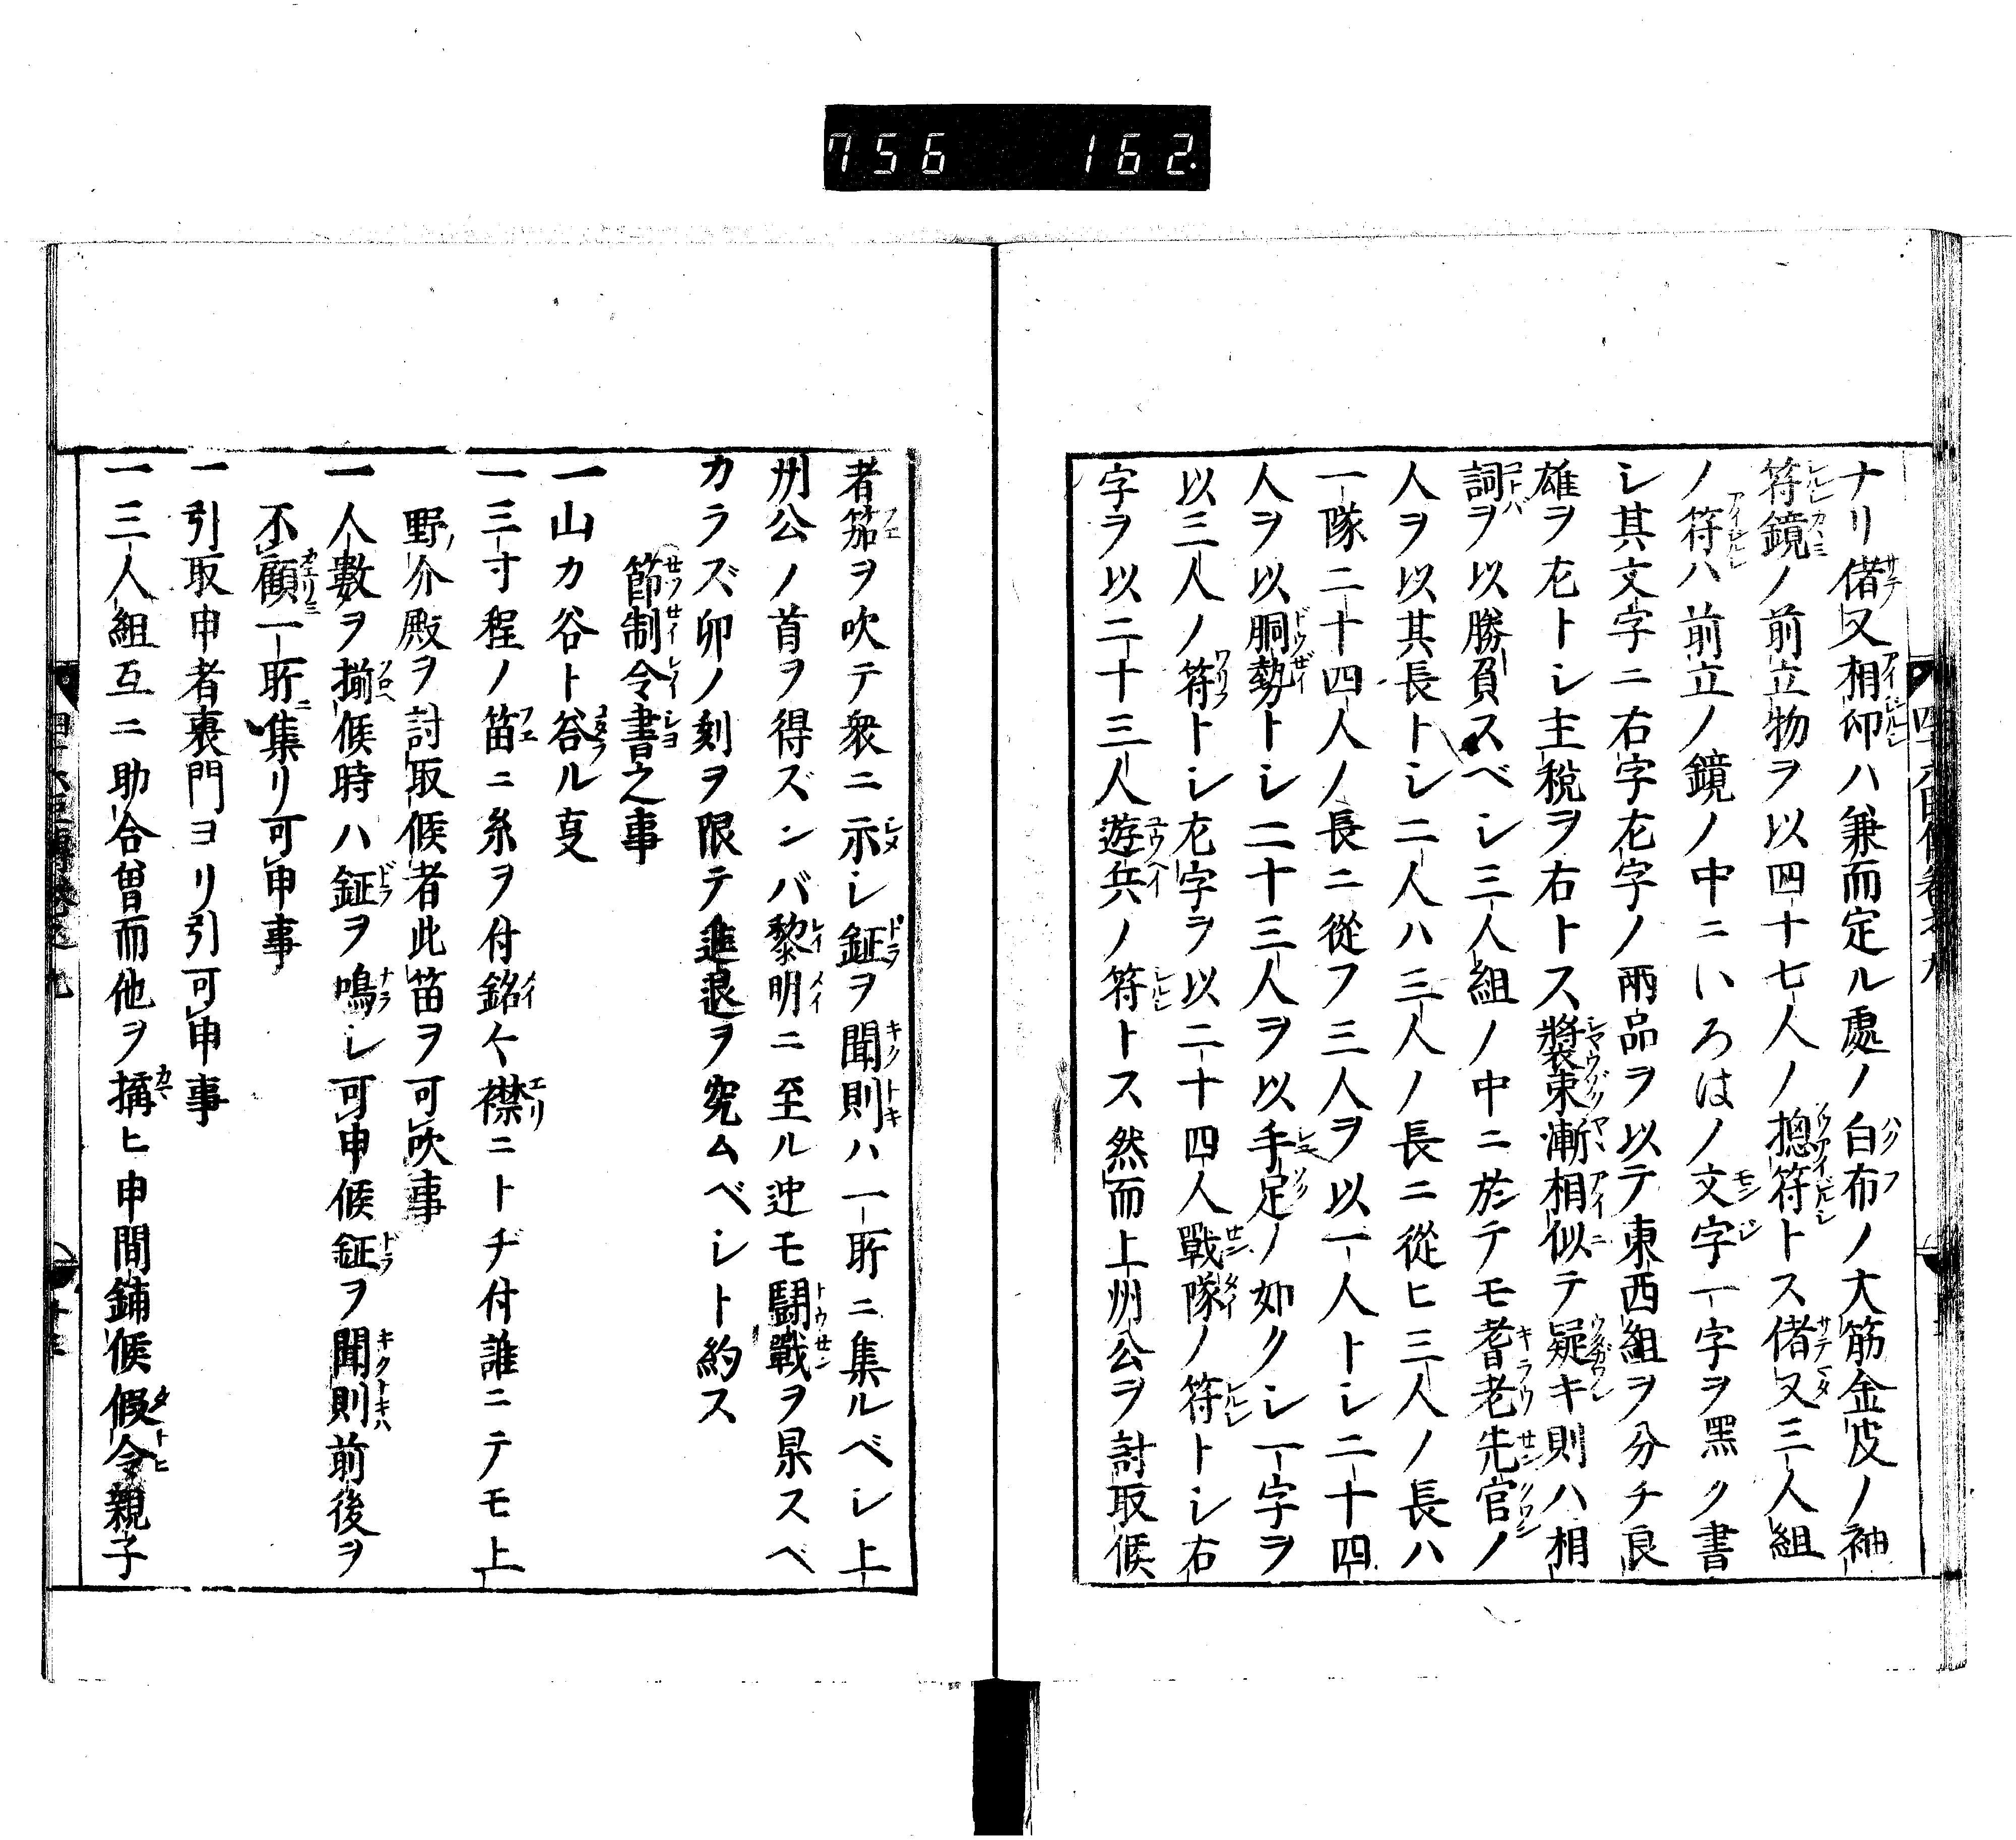 756 162.
ナリ偖又相印ハ兼而定ル處ノ白布ノ大筋金皮ノ袖
符鏡ノ前立物ヲ以四十七人ノ摠符トス偖又三人組
ノ符ハ前立ノ鏡ノ中ニいろはノ文字一字ヲ黒ク書
シ其文字ニ右字左字ノ兩品ヲ以テ東西組ヲ分チ良
雄ヲ左トシ主税ヲ右トス裝束漸相似テ疑キ則ハ相
詞ヲ以勝負スベシ三人組ノ中ニ於テモ耆老先官ノ
人ヲ以其長トシ二人ハ三人ノ長ニ從ヒ三人ノ長ハ
一隊二十四人ノ長ニ從フ三人ヲ以一人トシ二十四
人ヲ以胴勢トシ二十三人ヲ以手足ノ如クシ一字ヲ
以三人ノ符トシ左字ヲ以二十四人戰隊ノ符トシ右
字ヲ以二十三人遊兵ノ符トス然而上州公ヲ討取候
者笳ヲ吹テ衆ニ示シ鉦ヲ聞則ハ一所ニ集ルベシ上
州公ノ首ヲ得ズンバ黎明ニ至ル迚モ鬪戰ヲ杲スベ
カラズ卯ノ刻ヲ限テ進退ヲ究ムベシト約ス
節制令書之事
一山カ谷ト答ル㕝
一三寸程ノ笛ニ糸ヲ付銘々襟ニトヂ付誰ニテモ上
野介殿ヲ討取候者此笛ヲ可吹事
一人數ヲ揃候時ハ鉦ヲ鳴シ可申候鉦ヲ聞則前後ヲ
不顧一所ニ集リ可申事
一引取申者裏門ヨリ引可申事
一三人組互ニ助合曽而他ヲ搆ヒ申間鋪候假令親子